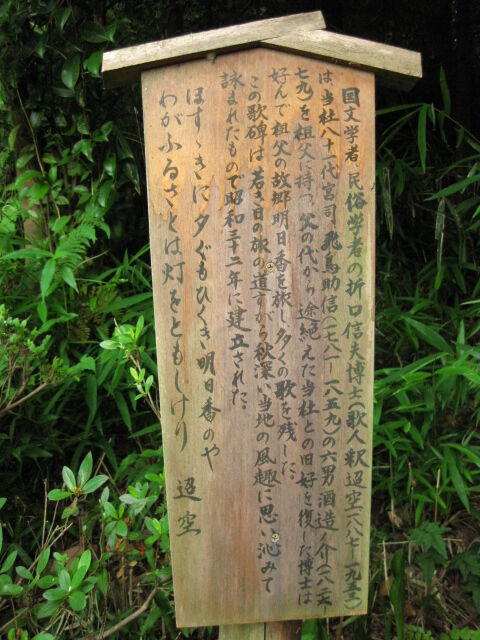 国文学者、民俗学者の折口信夫博士(歌人釈迢空一八八七ー一九五三)
は、当社八十一代宮司、飛鳥助信(一七八一ー一八五九)の六男酒造ノ介(一八二
七九)を祖父に持つ。父の代から途絶えた当社との旧好を復した博士は
好んで祖父の故郷明日香を旅し多くの歌を残した。
この歌碑は、若き日の旅の道すがら秋深い当地の風趣に思い沁みて
詠まれたもので昭和三十二年に建立された。
ほすゝきに夕ぐもひくき明日香のや
わがふるさとは灯をともしけり
迢空